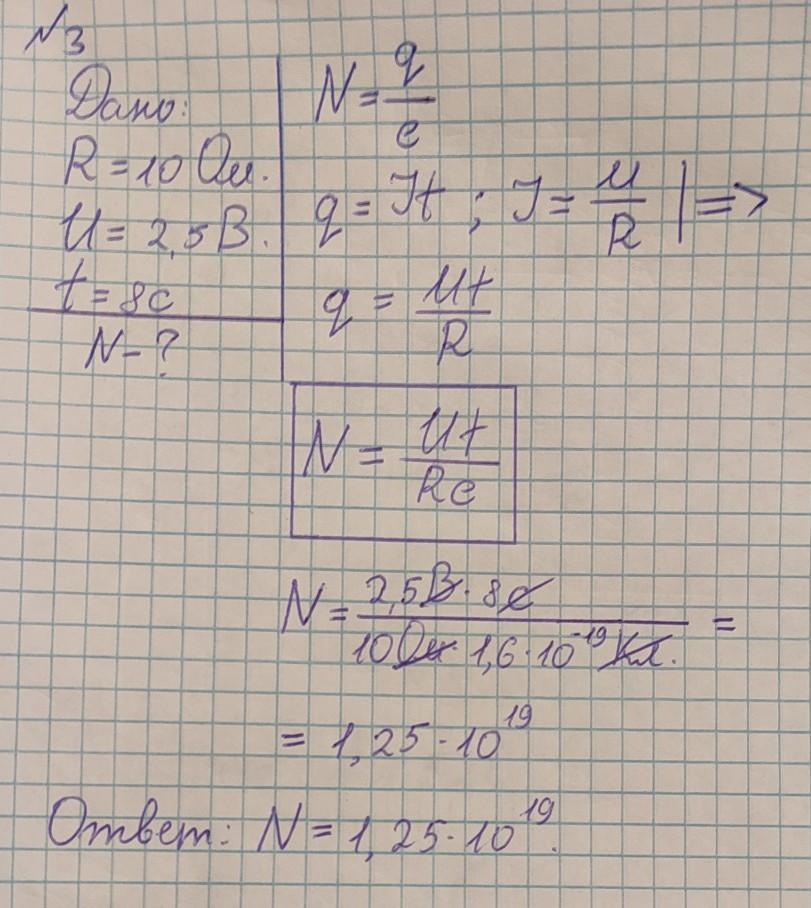 №3
Дано:
R = 10 Ом.
U = 2,5 В.
t = 8с
N - ?
N = q/e
q = It ; I = U/R | =>
q = Ut/R
N = Ut/Re
N = 2,5В · 8с / 10Ом · 1,6 · 10^-19 Кл. =
= 1,25 · 10^19
Ответ: N = 1,25 · 10^19.